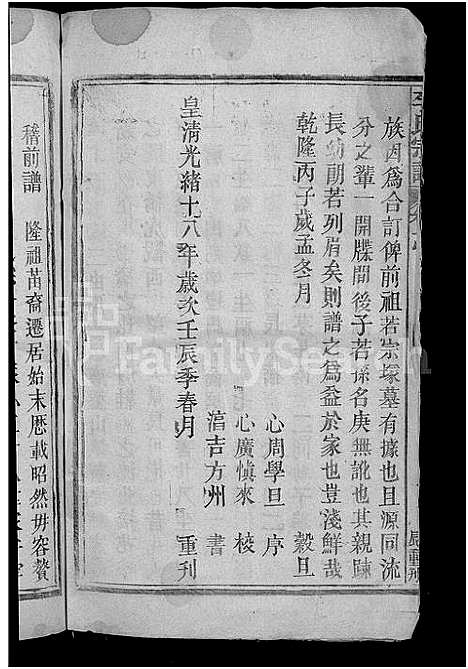 族因爲合訂俾前祖若宗塚墓有據也且源同流
分之輩一開牒間後子若孫名庚無訛也其親踈
長幼朗若列眉矣則譜之爲益於家也豈淺鮮哉
乾隆丙子歲孟冬月 穀旦
心周學旦 序
心廣慎來 梭
涫吉方州 書
皇清光緒十八年歲次壬辰季春月 重刊
稽前譜 隆祖苗裔遷居始末歷載昭然毋容贅
FamilySearch